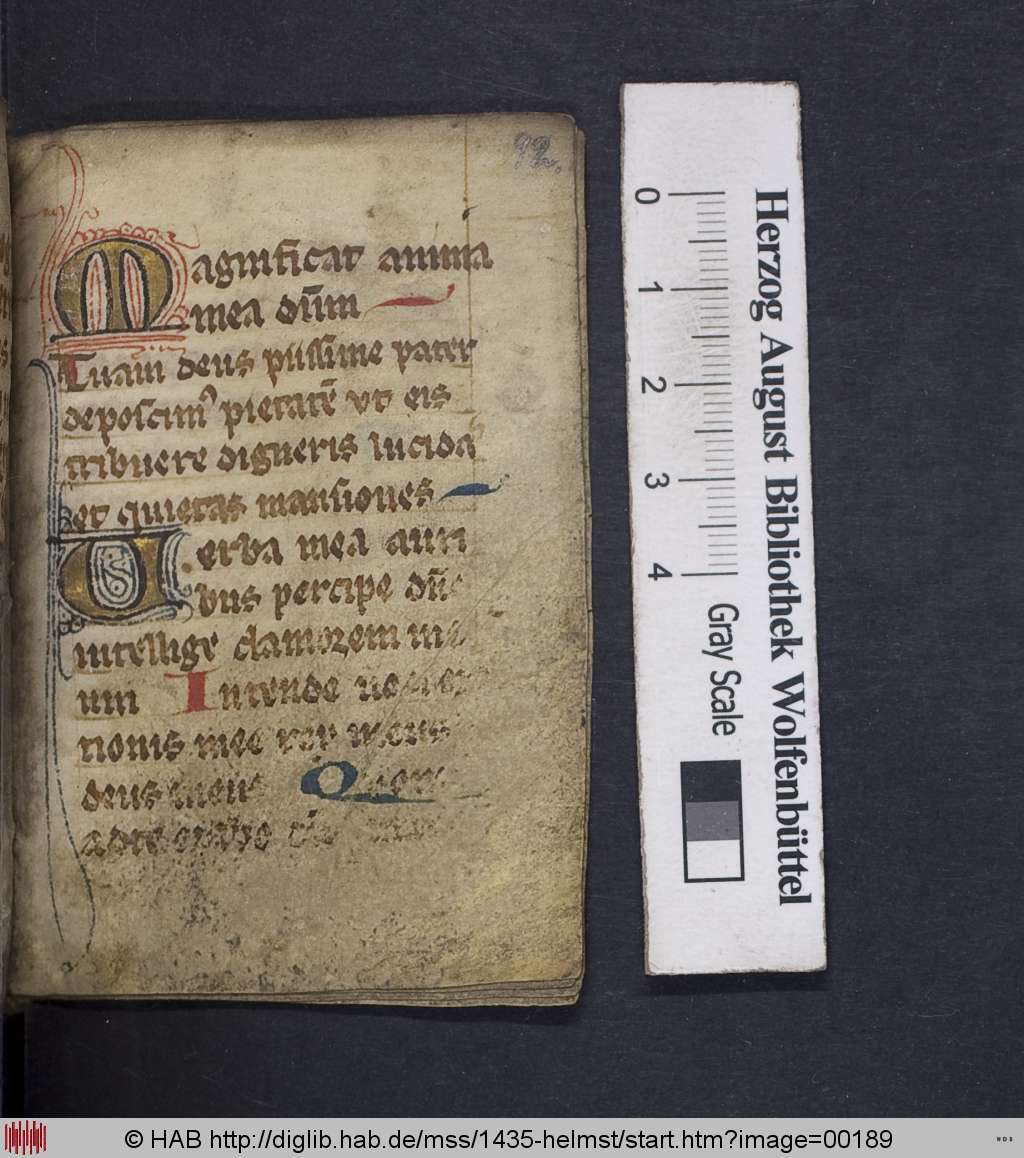 92.
Magnificat anima
mea dn̄m
Tuam deus piissime pater
deposcimꝰ pietatē vt eis
tribuere digneris lucida
et quietas mansiones
Uerba mea auri
bus percipe dn̄e
intellige clamorem me
um Intende
tionis mee rex meus
deus meus
ad te
0
1
2
3
4
Gray Scale
Herzog August Bibliothek Wolfenbüttel
© HAB http://diglib.hab.de/mss/1435-helmst/start.htm?image=00189